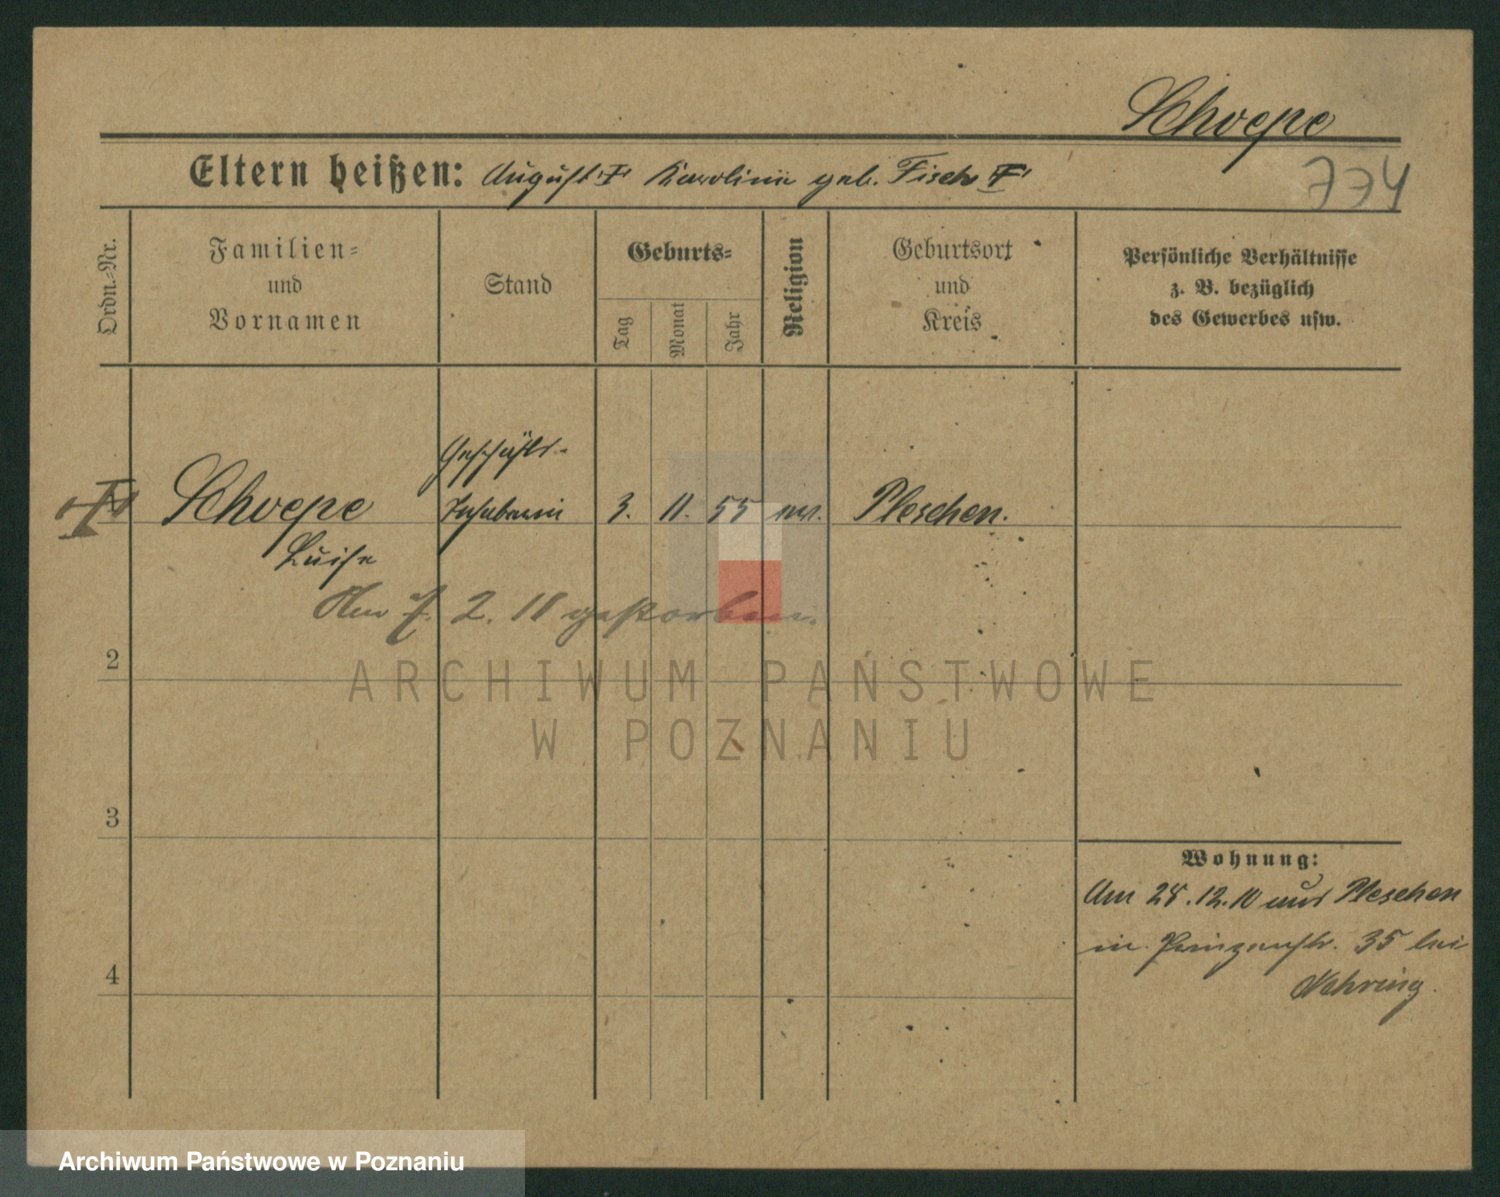 Schoepe
Eltern heißen: August † Karolina geb. Fisch †
774
Ordn.-Nr.
Familien-
und
Vornamen
Stand
Geburts-
Tag
Monat
Jahr
Religion
Geburtsort
und
Kreis
Persönliche Verhältnisse
z. B. bezüglich
des Gewerbes usw.
Geschäfts-
† Schoepe Inhaberin 3. 11. 55 ev. Pleschen.
Luise
Am 7. 2. 11 gestorben.
2
3
4
Wohnung:
Am 28.12.10 aus Pleschen
in Prinzenstr. 35 bei
Nehring.
ARCHIWUM PAŃSTWOWE
W POZNANIU
Archiwum Państwowe w Poznaniu